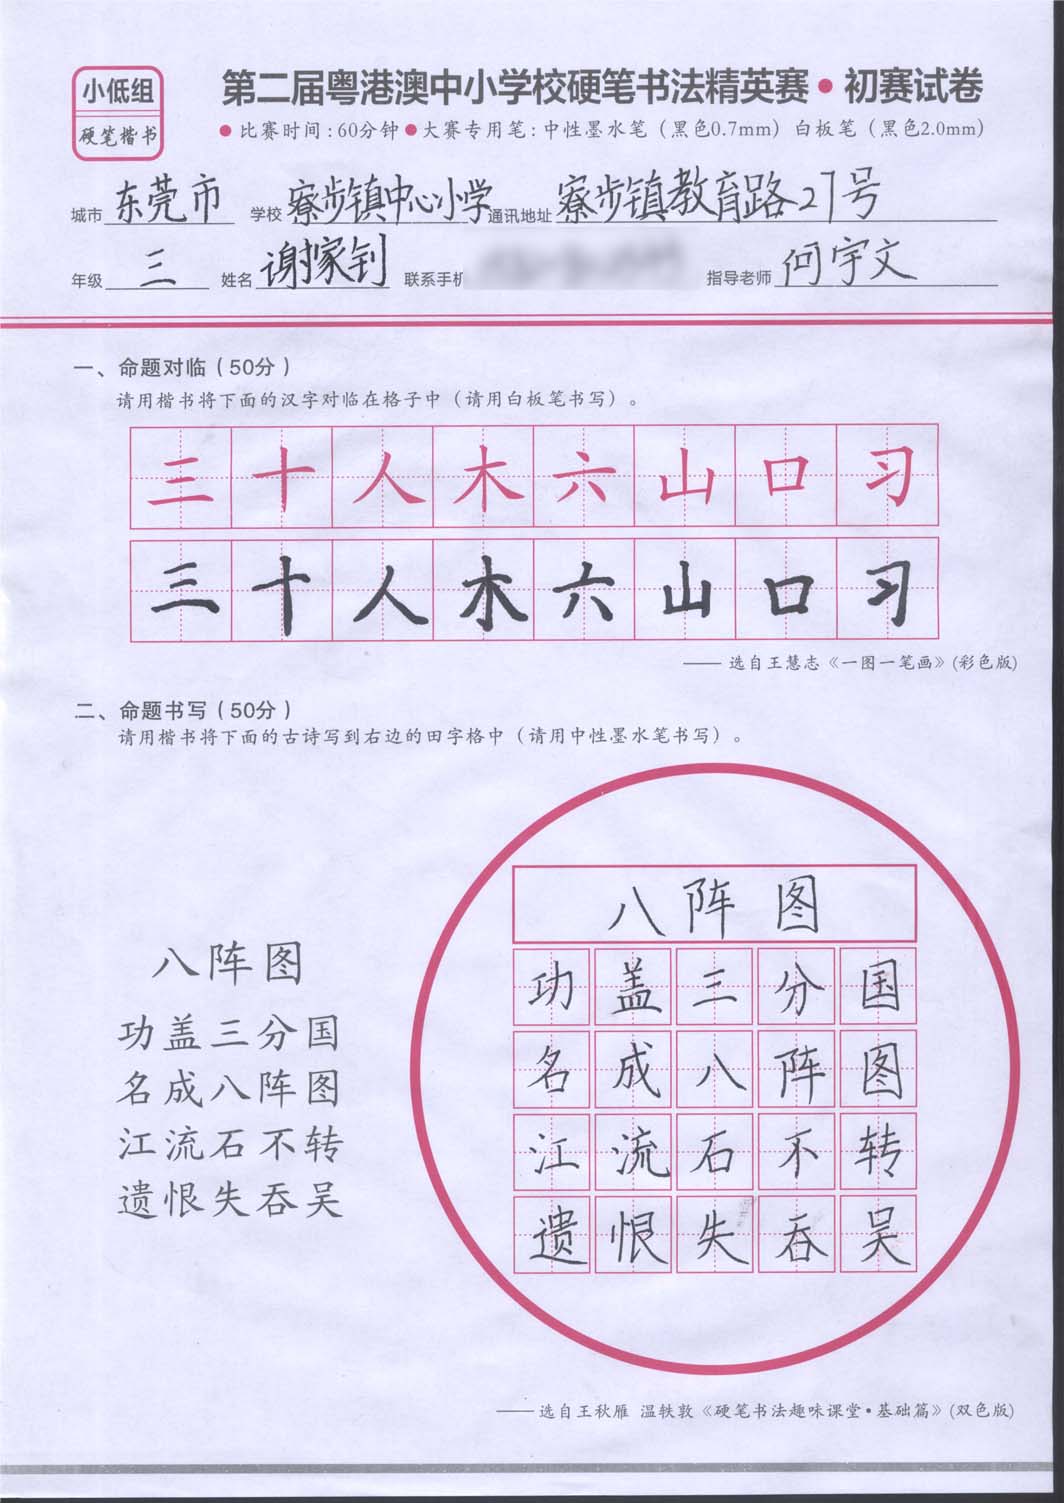 小低组
硬笔楷书
第二届粤港澳中小学校硬笔书法精英赛·初赛试卷
●比赛时间:60分钟●大赛专用笔:中性墨水笔（黑色0.7mm）白板笔（黑色2.0mm）
城市 东莞市 学校 寮步镇中心小学 通讯地址 寮步镇教育路27号
年级 三 姓名 谢家钊 联系手机 指导老师 何宇文
一、命题对临（50分）
请用楷书将下面的汉字对临在格子中（请用白板笔书写）。
三十人木六山口习
三十人木六山口习
—— 选自王慧志《一图一笔画》(彩色版)
二、命题书写（50分）
请用楷书将下面的古诗写到右边的田字格中（请用中性墨水笔书写）。
八阵图
功盖三分国
名成八阵图
江流石不转
遗恨失吞吴
八阵图
功盖三分国
名成八阵图
江流石不转
遗恨失吞吴
—— 选自王秋雁 温轶敦《硬笔书法趣味课堂·基础篇》(双色版)